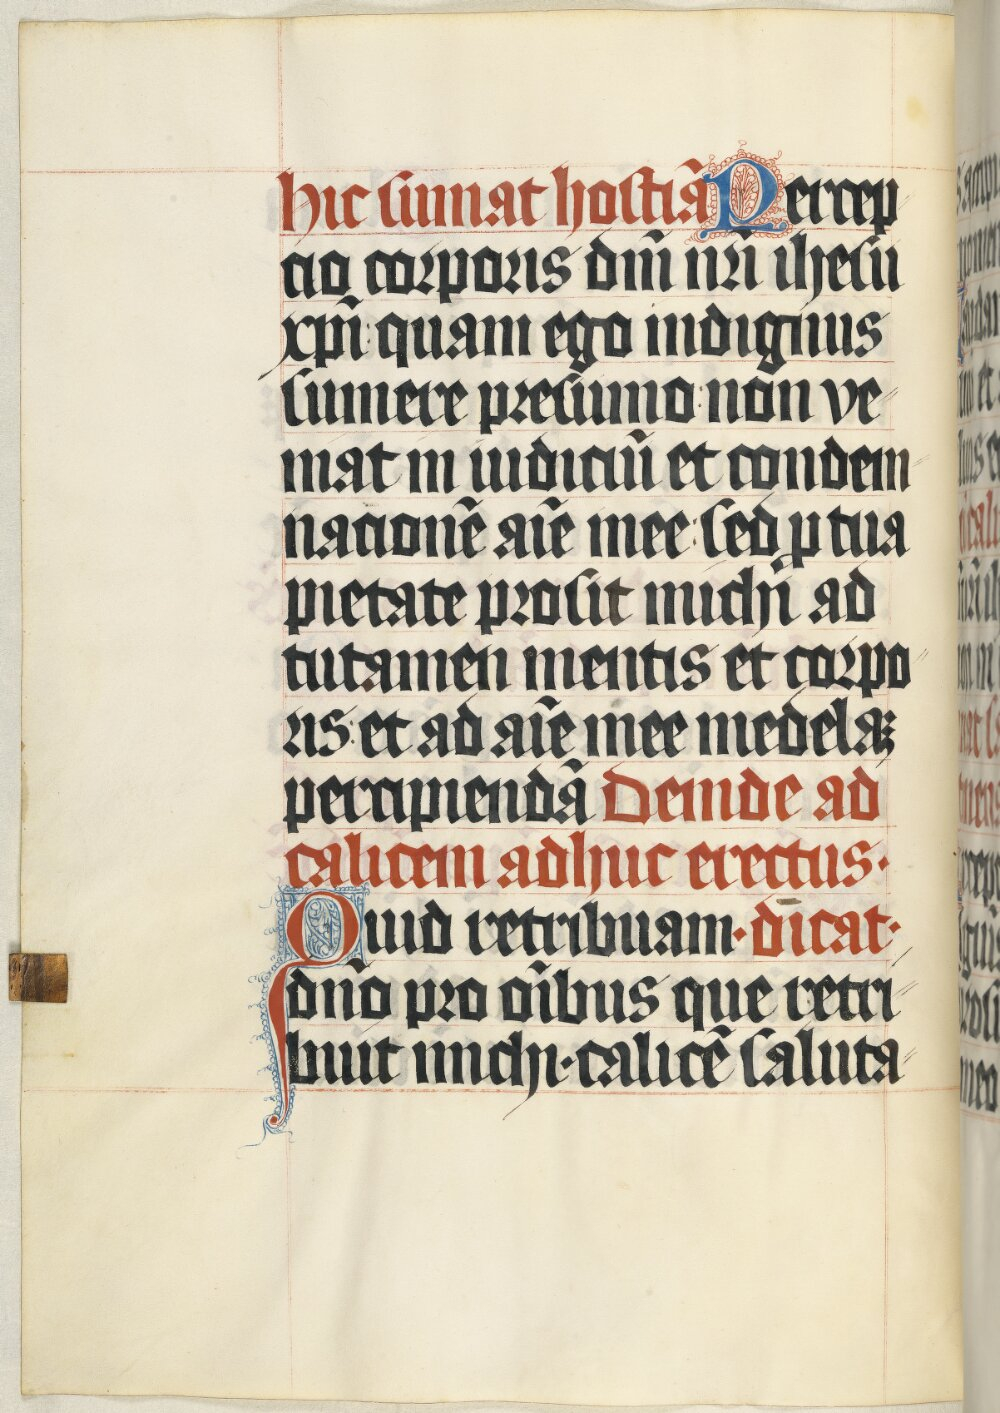 hic sumat hostiā Percep
cio corporis dm̄ nr̄i ihesu
xp̄i: quam ego indignus
sumere presumo: non ve
niat in iudiciū et condem
nacionē aīe mee: sed ꝑ tua
pietate prosit michi ad
tutamen mentis et corpo
ris: et ad aīe mee medelaꝫ
percipiendā Deinde ad
calicem adhuc erectus·
Quid retribuam· dicat·
dn̄o pro oībus que retri
buit michi· calicē saluta